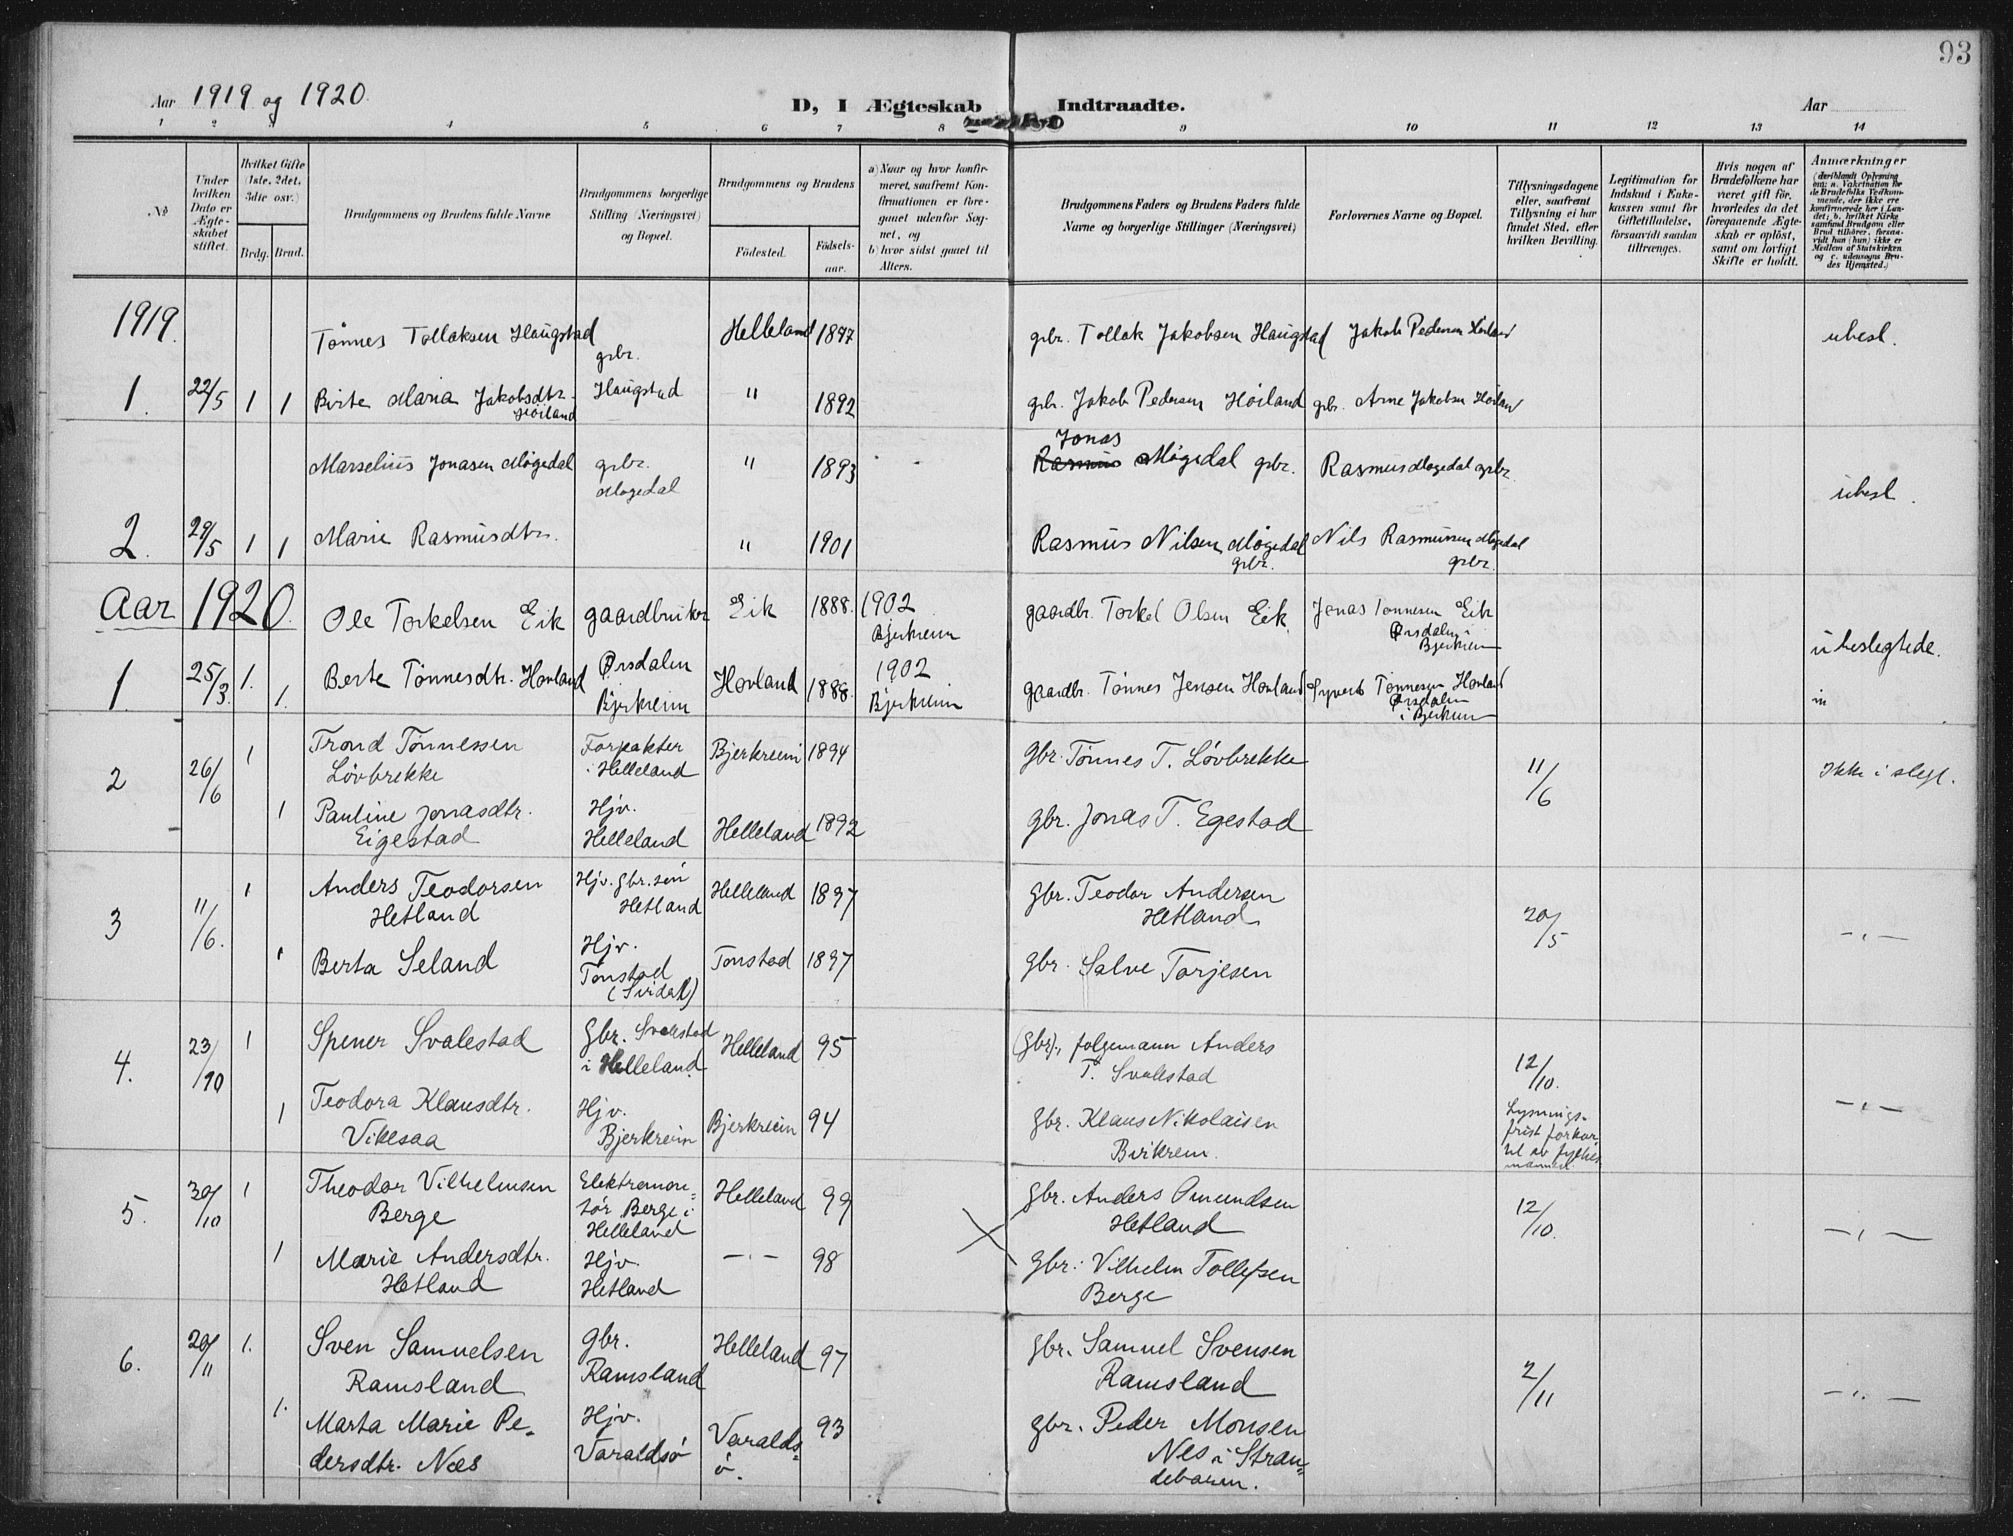 93
Aar 1919 og 1920.
D, I Ægteskab Indtraadte.
Aar
1 2 3 4 5 6 7 8 9 10 11 12 13 14
№
Under hvilken Dato er Ægteskabet stiftet.
Hvilket Gifte (1ste, 2det, 3die osv.)
Brdg. Brud.
Brudgommens og Brudens fulde Navne
Brudgommens borgerlige Stilling (Næringsvei) og Bopæl.
Brudgommens og Brudens
Fødested.
Fødsels-aar.
a) Naar og hvor konfirmeret, saafremt Konfirmationen er foregaaet udenfor Sognet, og
b) hvor sidst gaaet til Alters.
Brudgommens Faders og Brudens Faders fulde Navne og borgerlige Stillinger (Næringsvei)
Forlovernes Navne og Bopæl.
Tillysningsdagene eller, saafremt Tillysning ei har fundet Sted, efter hvilken Bevilling.
Legitimation for Indskud i Enkekassen samt for Giftetilladelse, forsaavidt saadan tiltrænges.
Hvis nogen af Brudefolkene har været gift før, hvorledes da det foregaaende Ægteskab er opløst, samt om lovligt Skifte er holdt.
Anmærkninger
(deriblandt Oplysning om: a. Vakcination for de Brudefolks Vedkommende, der ikke ere konfirmerede her i Landet; b. hvilket Kirkesamfund Brudgom eller Brud tilhører, forsaavidt han (hun) ikke er Medlem af Statskirken og c. udensogns Brudes Hjemsted.)
1919.
Tønnes Tollaksen Haugstad gbr. Helleland 1897 gbr. Tollak Jakobsen Haugstad Jakob Pedersen Høiland ubesl.
1. 22/5 1 1 Birte Maria Jakobsdtr. Høiland Haugstad " 1892 gbr. Jakob Pedersen Høiland gbr. Arne Jakobsen Høiland
Marselius Jonasen Møgedal gbr. Møgedal " 1893 Jonas Rasmus Møgedal gbr. Rasmus Møgedal gbr. ubesl.
2. 29/5 1 1 Marie Rasmusdtr. " 1901 Rasmus Nilsen Møgedal gbr. Nils Rasmussen Møgedal gbr.
Aar 1920.
Ole Torkelsen Eik gaardbruker Eik 1888. 1902 Bjerkreim gaardbr. Torkel Olsen Eik. Jonas Tønnesen Eik Ørsdalen i Bjerkreim ubeslegtede.
1. 25/3. 1. 1. Berte Tønnesdtr. Hovland Ørsdalen Bjerkreim Hovland 1888. 1902 Bjerkreim gaardbr. Tønnes Jensen Hovland Syvert Tønnesen Hovland Ørsdalen i Bjerkreim
2 26/6 1 Trond Tønnessen Løvbrekke Forpakter i Helleland Bjerkreim 1894 Gbr. Tønnes T. Løvbrekke 11/6 Ikke i slegt.
1 Pauline Jonasdtr. Eigestad Hjv. Helleland Helleland 1892 gbr. Jonas T. Egestad
3 11/6. 1 Anders Teodorsen Hetland Hjv. gbr. søn Hetland Helleland 1897 gbr. Teodor Andersen Hetland 20/5 —"—
1 Berta Seland Hjv. Tonstad (Sirdal) Tonstad 1897 gbr. Salve Torjesen
4. 23/10 1 Spener Svalestad gbr. Svalestad i Helleland Helleland 95 (gbr)., folgemann Anders T. Svalestad 12/10.
1 Teodora Klausdtr. Vikesaa Hjv. Bjerkreim Bjerkreim 94 gbr. Klaus Nikolaisen Birkrem. Lysnings-frist forkortet av fylkesmannen —"—
5. 30/10 1 Theodor Vilhelmsen Berge Elektromontør Berge i Helleland Helleland 99 gbr. Anders Omundsen Hetland 12/10. —"—
1 Marie Andersdtr. Hetland Hjv. Hetland —"— 98 gbr. Vilhelm Tollefsen Berge
6. 20/11 1. Sven Samuelsen Ramsland gbr. Ramsland Helleland 97 gbr. Samuel Svensen Ramsland 2/11 —"—
1. Marta Marie Pedersdtr. Næs Hjv. Varaldsø Varaldsø. 93 gbr. Peder Monsen Nes i Strandebarm.